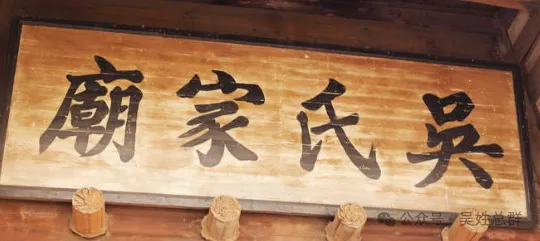 吳氏家廟
公众号·吴姓总群